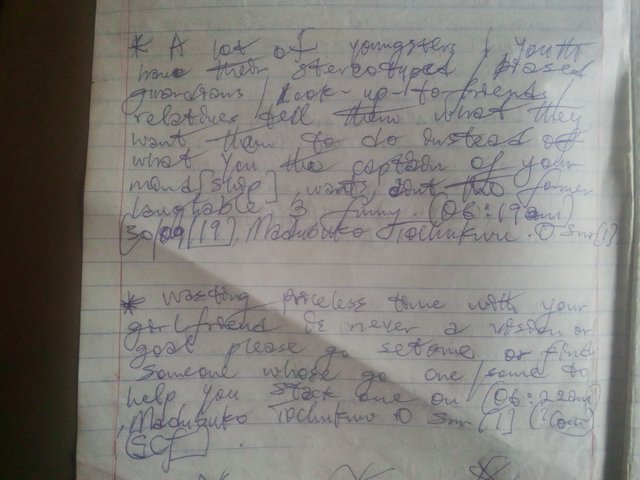 * A lot of youngsters / youths
have their stereotyped / biased
guardians / look-up-to-friends /
relatives tell them what they
want them to do instead of
what you the captain of your
mind [ship] wants, isn't the former
laughable & funny. (06:19am)
[30/09/19], Madubuko Tochukwu .O Snr [1]
* Wasting priceless time with your
girlfriend is never a vision or
goal please go get one or find
someone whose go one / some to
help you stack one on. (06:22am)
, Madubuko Tochukwu O Snr [1]
[GCF]